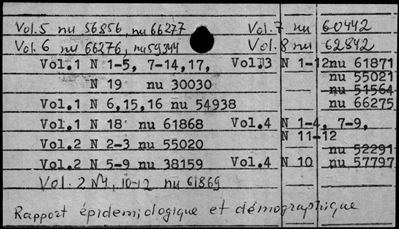 Vol.5 nu 56856, nu 66277 Vol.7 nu 60442
Vol.6 nu 66276, nu 59344 Vol.8 nu 62842
Vol.1 N 1-5, 7-14,17, Vol.3 N 1-12 nu 61871
N 19 nu 30030 nu 55021
nu 51564
Vol.1 N 6,15,16 nu 54938 nu 66275
Vol.1 N 18 nu 61868 Vol.4 N 1-4, 7-9,
N 11-12
Vol.2 N 2-3 nu 55020 nu 52291
Vol.2 N 5-9 nu 38159 Vol.4 N 10 nu 57797
Vol. 2 N4, 10-12 nu 61869
Rapport épidemiologique et démographique